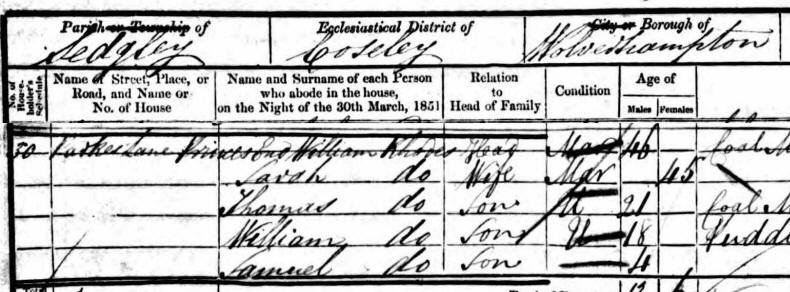 Parish or Township of Ecclesiastical District of City or Borough of
Sedgley Coseley Wolverhampton
No. of House-holder's Schedule Name of Street, Place, or Road, and Name or No. of House Name and Surname of each Person who abode in the house, on the Night of the 30th March, 1851 Relation to Head of Family Condition Age of Males Females
50 Parkes Lane Princes End William Rhodes Head Mar 46 Coal M
Sarah do Wife Mar 45
Thomas do Son U 21 Coal M
William do Son U 18 Puddl
Samuel do Son 4